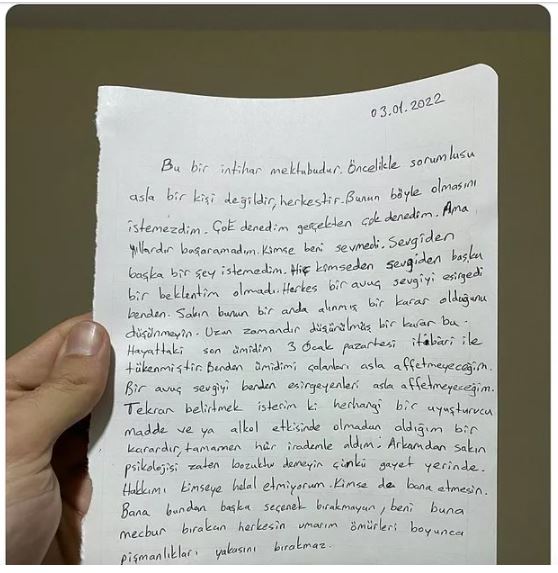 03.01.2022
Bu bir intihar mektubudur. Öncelikle sorumlusu
asla bir kişi değildir, herkestir. Bunun böyle olmasını
istemezdim. Çok denedim gerçekten çok denedim. Ama
yıllardır başaramadım. Kimse beni sevmedi. Sevgiden
başka bir şey istemedim. Hiç kimseden sevgiden başka
bir beklentim olmadı. Herkes bir avuç sevgiyi esirgedi
benden. Sakın bunun bir anda alınmış bir karar olduğunu
düşünmeyin. Uzun zamandır düşünülmüş bir karar bu.
Hayattaki son ümidim 3 Ocak pazartesi itibari ile
tükenmiştir. Benden ümidimi çalanları asla affetmeyeceğim.
Bir avuç sevgiyi benden esirgeyenleri asla affetmeyeceğim.
Tekrar belirtmek isterim ki herhangi bir uyuşturucu
madde ve ya alkol etkisinde olmadan aldığım bir
karardır, tamamen hür irademle aldım. Arkamdan sakın
psikolojisi zaten bozuktu demeyin çünkü gayet yerinde.
Hakkımı kimseye helal etmiyorum. Kimse de bana etmesin.
Bana bundan başka seçenek bırakmayan, beni buna
mecbur bırakan herkesin umarım ömürleri boyunca
pişmanlıkları yakasını bırakmaz.